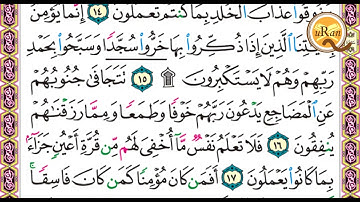 وَذُوقُوا۟ عَذَابَ ٱلْخُلْدِ بِمَا كُنتُمْ تَعْمَلُونَ ١٤ إِنَّمَا يُؤْمِنُ
بِـَٔايَـٰتِنَا ٱلَّذِينَ إِذَا ذُكِّرُوا۟ بِهَا خَرُّوا۟ سُجَّدًا وَسَبَّحُوا۟ بِحَمْدِ
رَبِّهِمْ وَهُمْ لَا يَسْتَكْبِرُونَ ۩ ١٥ تَتَجَافَىٰ جُنُوبُهُمْ
عَنِ ٱلْمَضَاجِعِ يَدْعُونَ رَبَّهُمْ خَوْفًا وَطَمَعًا وَمِمَّا رَزَقْنَـٰهُمْ
يُنفِقُونَ ١٦ فَلَا تَعْلَمُ نَفْسٌ مَّآ أُخْفِىَ لَهُم مِّن قُرَّةِ أَعْيُنٍ جَزَآءًۢ
بِمَا كَانُوا۟ يَعْمَلُونَ ١٧ أَفَمَن كَانَ مُؤْمِنًا كَمَن كَانَ فَاسِقًا ۚ
uRan